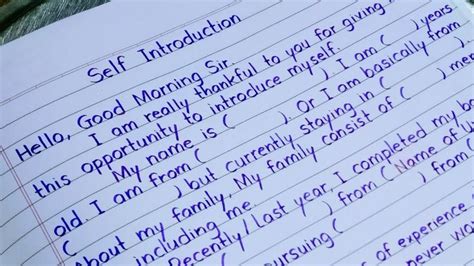 Self Introduction
Hello, Good Morning Sir.
I am really thankful to you for giving
this opportunity to introduce myself.
My name is ( ). I am ( ) years
old. I am from ( ). Or I am basically from
( ) but currently staying in ( )
About my family, My family consist of ( )
including me.
Recently/Last year, I completed my
( ) from (Name of
pursuing ( ) from (
of experience
never